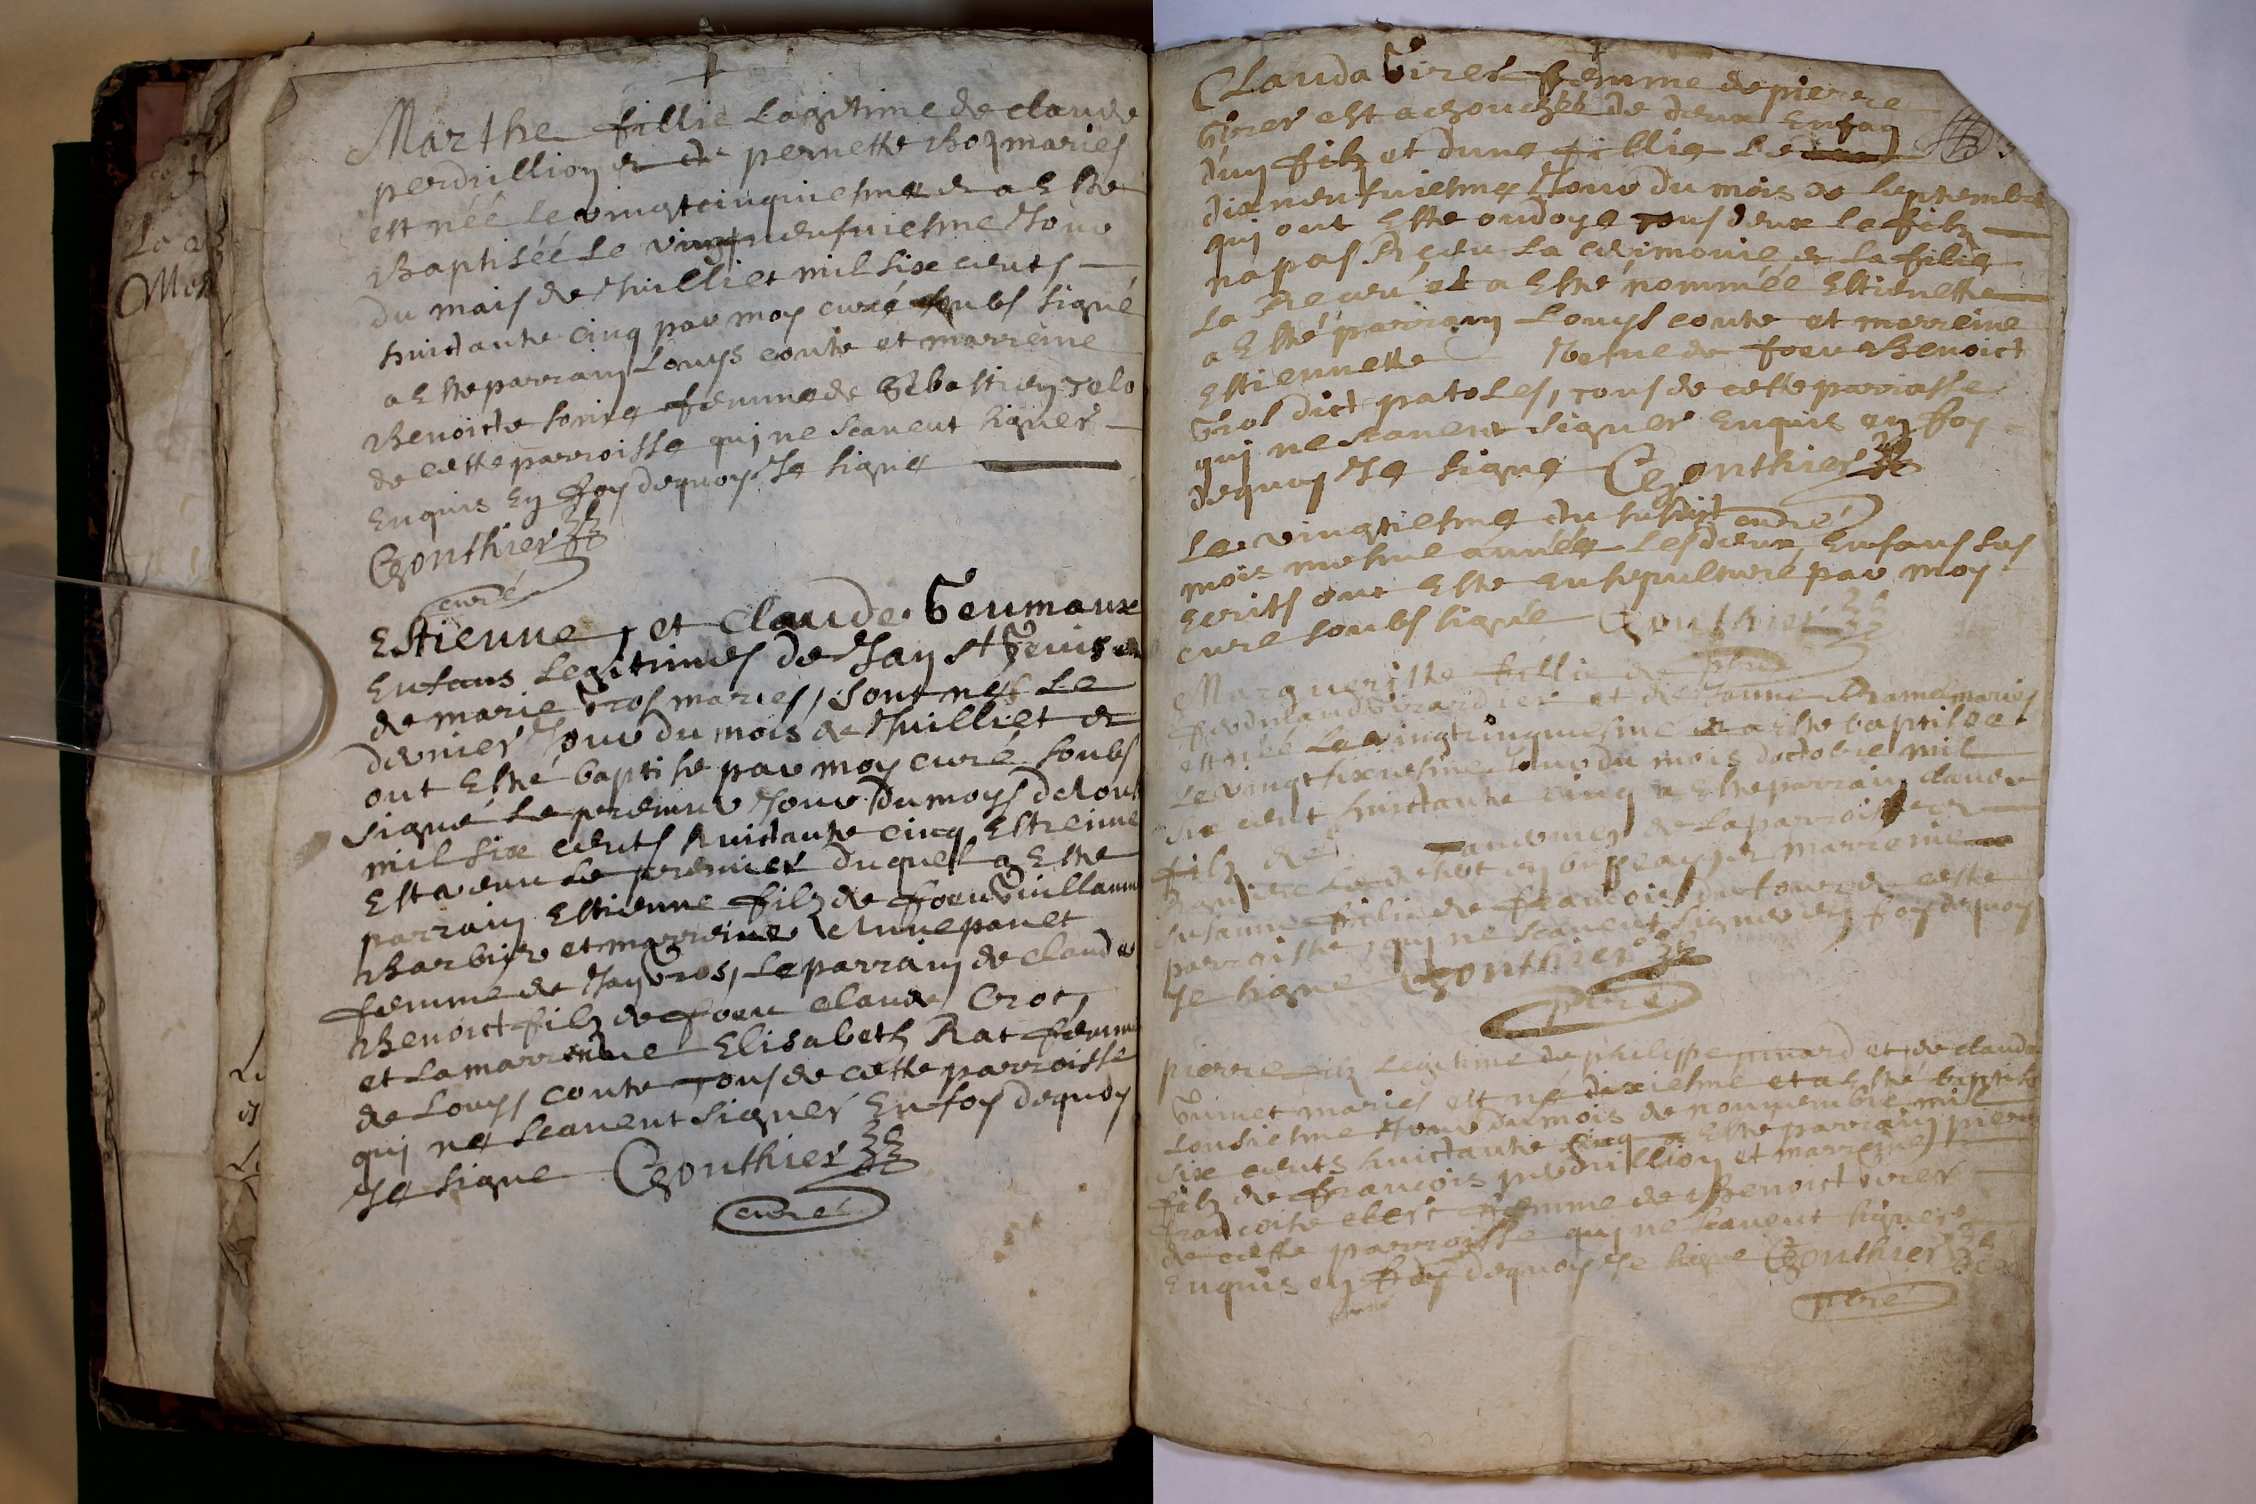 Marthe fillie Lagitime de claude
perdrillion et de pernette Boz maries
est née le vingtcinquiesme et a este
Baptiséé Le vingtneufuiesme Jour
du mais de Juilliet mil six cents
huictante cinq par moy curé soubs signé
a Este parrain Louys conte et marreine
Benoicte femme de Sebastien
de cette parroisse qui ne scauent signer
Enquis En foy dequoy Je signe
Gonthier
curé
Estienne, et Claude Geumaux
Enfans Legitimes de Jan et
de marie Gros maries, sont nes Le
dernier Jour du mois de Juilliet et
ont Esté baptise par moy curé soubs
signé Le premier Jour du moys dAout
mil six cents huictante cinq Estienne
Est venu Le premier duquel a Este
parrain Estienne filz de feeu Guillaume
Barbier et marreine Anne panet
femme de Jan Gros, Le parrain de claude
Benoict filz de feeu claude Croc,
et La marreine Elisabeth Rat femme
de Louys conte Tous de cette parroisse
qui ne scauent signer En foy dequoy
Je signe Gonthier
curé
Clauda femme de pierre
est achouchéé de deux Enfan
d'un filz et dune fillie Le
dixneufuiesme Jour du mois de septembre
qui ont Este ondoye tous deux Le filz
na pas Receu La cerimonie et La fillie
La Receu et a Esté nomméé Estienette
a Esté parrain Louys conte et marreine
Estiennette vefue de feeu Benoict
Gros dict patoles, tous de cette parroisse
qui ne scauent signer Enquis en foy
dequoy Je signe Gonthier
curé
Le vingtiesme du susdit
mois mesme année Lesdeux Enfans sus
Ecrits ont Este Ensepulture par moy
curé soubs signé Gonthier
ptre
Marguerite fillie de
et de Janne maries
est néé Le vingtcinquiesme et a este baptisée
Le vingt sixiesme Jour du mois doctobre mil
six cent huictante cinq a Este parrain claude
filz de de La parroisse
et marreine
Susanne fillie de francois dufour de ceste
parroisse, qui ne scauent signer en foy dequoy
Je signe Gonthier
ptre
pierre filz Legitime de philippe et de clauda
maries est né dixiesme et a Esté baptisé
Lonsiesme Jour du mois de nouuembre mil
six cents huictante cinq a Este parrain pierre
filz de francois perdrillion et marreine
francoise clerc femme de Benoict
de cette parroisse qui ne scauent signer
Enquis en foy dequoy Je signe Gonthier
ptre